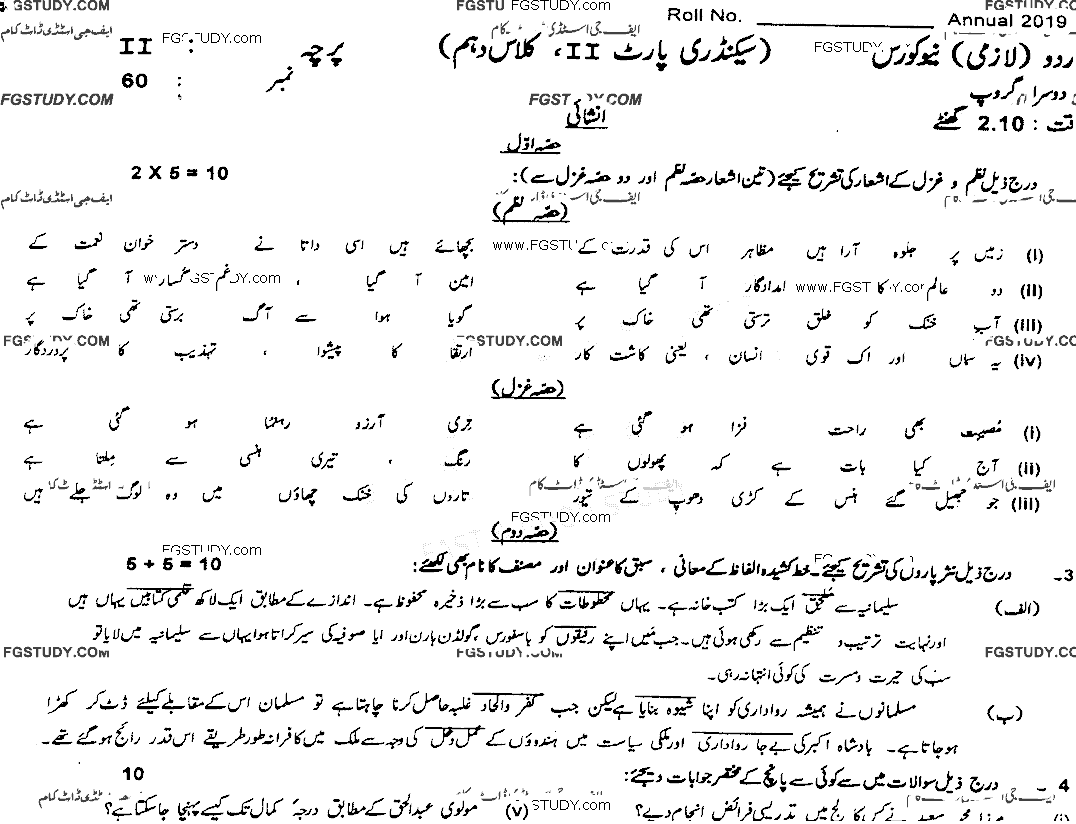 FGSTUDY.COM FGSTU FGSTUDY.com FGSTUDY.CO
Roll No. ____________ Annual 2019
ایف جی اسٹڈی ڈاٹ کام
ردو (لازمی) نیوکورس FGSTUDY (سیکنڈری پارٹ II، کلاس دہم) پرچہ : II FGSTUDY.com
دوسرا گروپ نمبر : 60
FGSTUDY.COM
قت : 2.10 گھنٹے
انشائی
حصہ اوّل
درج ذیل نظم و غزل کے اشعار کی تشریح کیجئے (تین اشعار حصہ نظم اور دو حصہ غزل سے): 2 X 5 = 10
ایف جی اسٹڈی ڈاٹ کام
(حصہ نظم)
(i) زمیں پر جلوہ آرا ہیں مظاہر اس کی قدرت کے بچھائے ہیں اسی داتا نے دستر خوان نعمت کے
(ii) دو عالم کا امدادگار آ گیا ہے امین آ گیا ، غم گسار آ گیا ہے
(iii) آب خنک کو خلق ترستی تھی خاک پر گویا ہوا سے آگ برستی تھی خاک پر
FGSTUDY.COM
(iv) یہ سماں اور اک قوی انسان ، یعنی کاشت کار ارتقا کا پیشوا ، تہذیب کا پروردگار
(حصہ غزل)
(i) مصیبت بھی راحت فزا ہو گئی ہے تری آرزو رہنما ہو گئی ہے
(ii) آج کیا بات ہے کہ پھولوں کا رنگ ، تیری ہنسی سے ملتا ہے
(iii) جو جھیل گئے ہنس کے کڑی دھوپ کے تیور تاروں کی خنک چھاؤں میں وہ لوگ جلے ہیں
FGSTUDY.com
(حصہ دوم)
FGSTUDY.com
3۔ درج ذیل نثر پاروں کی تشریح کیجئے۔ خط کشیدہ الفاظ کے معانی ، سبق کا عنوان اور مصنف کا نام بھی لکھئے: 5 + 5 = 10
(الف) سلیمانیہ سے ملحق ایک بڑا کتب خانہ ہے۔ یہاں مخطوطات کا سب سے بڑا ذخیرہ محفوظ ہے۔ اندازے کے مطابق ایک لاکھ قلمی کتابیں یہاں ہیں
اور نہایت ترتیب و تنظیم سے رکھی ہوئی ہیں۔ جب میں اپنے رفیقوں کو باسفورس ، گولڈن ہارن اور ایا صوفیہ کی سیر کراتا ہوا یہاں سے سلیمانیہ میں لایا تو
FGSTUDY.COM
سب کی حیرت ومسرت کی کوئی انتہا نہ رہی۔
(ب) مسلمانوں نے ہمیشہ رواداری کو اپنا شیوہ بنایا ہے لیکن جب کفر والحاد غلبہ حاصل کرنا چاہتا ہے تو مسلمان اس کے مقابلے کیلئے ڈٹ کر کھڑا
ہو جاتا ہے۔ بادشاہ اکبر کی بے جا رواداری اور ملکی سیاست میں ہندوؤں کے عمل دخل کی وجہ سے ملک میں کافرانہ طور طریقے اس قدر رائج ہو گئے تھے۔
4 ۔ درج ذیل سوالات میں سے کوئی سے پانچ کے مختصر جوابات دیجئے: 10
(i) مرزا محمد سعید نے کس کالج میں تدریسی فرائض انجام دیے؟ (v) مولوی عبدالحق کے مطابق درجۂ کمال تک کیسے پہنچا جا سکتا ہے؟